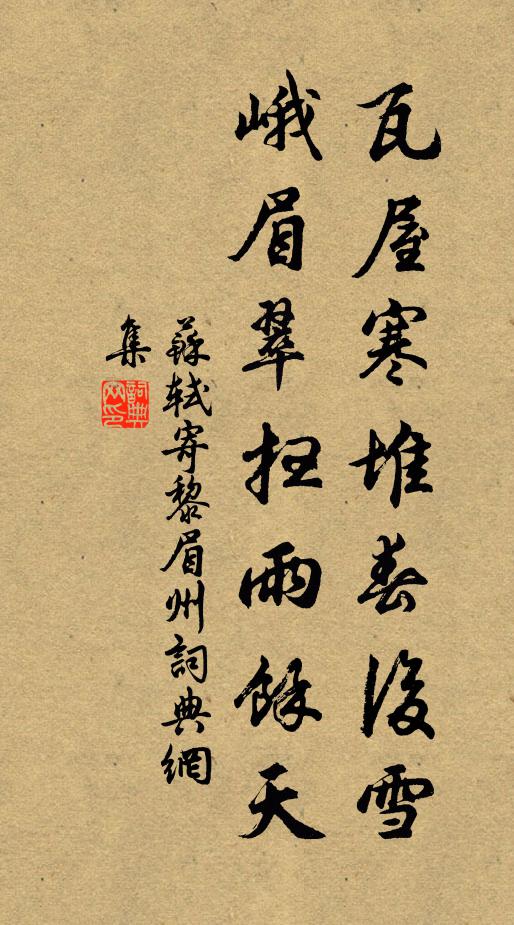 瓦屋寒堆春後雪
峨眉翠掃雨餘天
蘇軾寄黎眉州詞典網
集
詞典網印